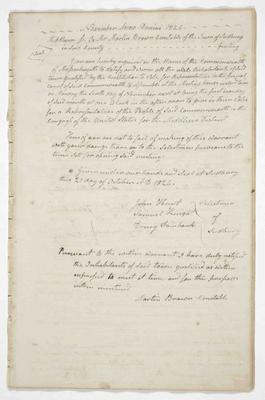 November Anno Domini 1824
Middlesex Ss. To Mr. Martin Brown Constable of the Town of Sudbury
in said County Greeting
You are hereby required in the Name of the Commonwealth
of Massachusetts to Notify and warn all the Male Inhabitants of said
town qualified by the Constitution to vote for Representatives in the General
Court of said Commonwealth to assemble at the Meeting house in said Town
on Monday the first day of November next it being the first monday
of said month at one Clock in the after noon to give in their Votes
for a Representative of the People of said Commonwealth in the
Congress of the United States for the Middlesex District
Hereof you are not to fail of making of this warrant
with your doings thereon to the Selectmen previous to the
time set for opening said meeting
Given under our hands and Seal at Sudbury
this 21 day of October AD 1824.
John Hunt
Samuel Selectmen
Fairbank of
Sudbury
Pursuant to the within warrant I have duly notified
the Inhabitants of said town qualified as within
expressed to meet at time and for the purposes
within mentioned
Martin Brown Constable